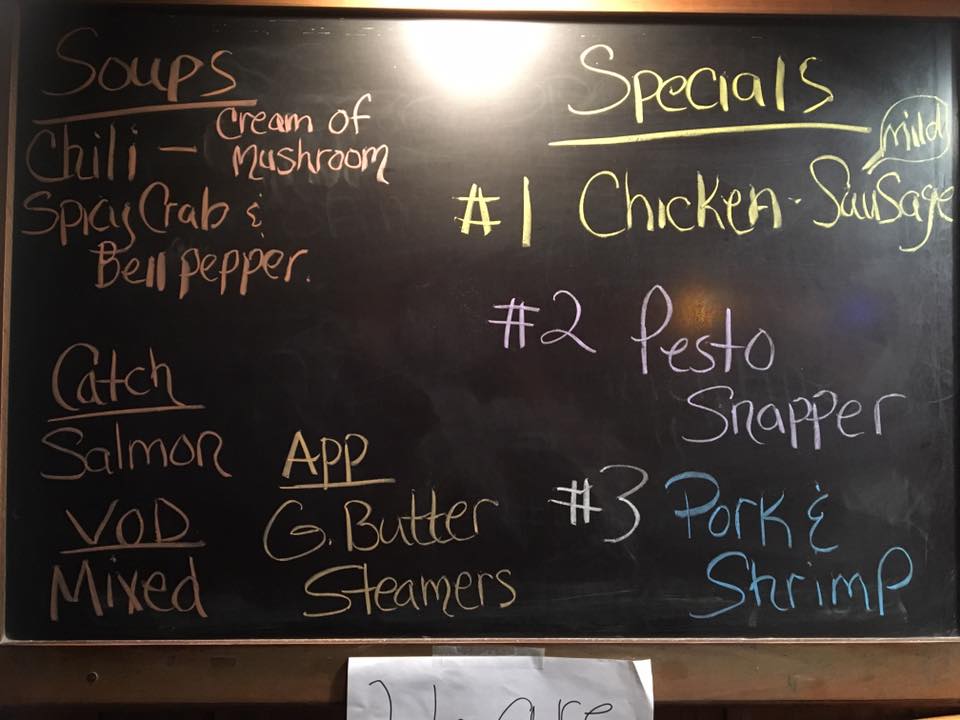 Soups
Chili - Cream of
Mushroom
Spicy Crab &
Bell pepper.
Catch
Salmon
VOD
Mixed
App
G. Butter
Steamers
Specials
mild
#1 Chicken - Sausage
#2 Pesto
Snapper
#3 Pork &
Shrimp
are